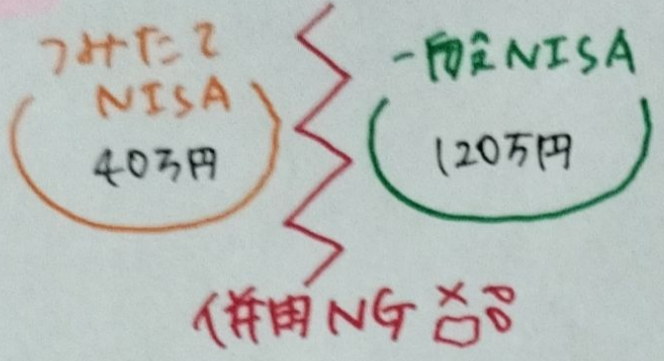 つみたて
NISA
40万円
一般NISA
120万円
併用NG